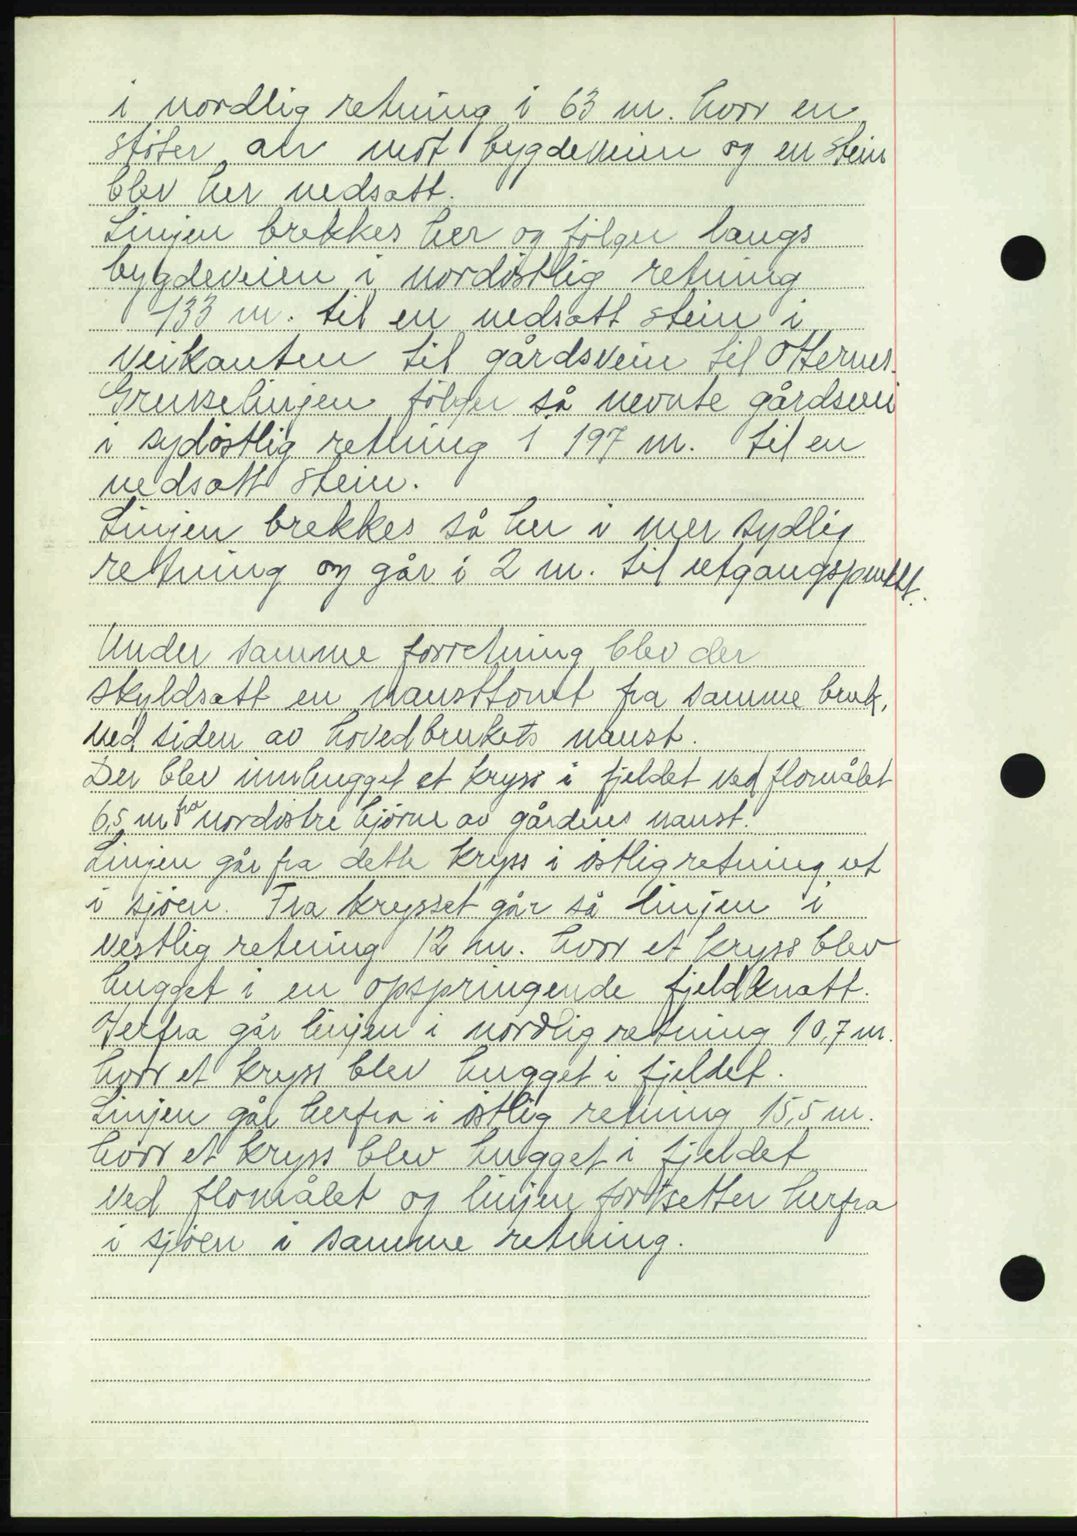 i nordlig retning i 63 m. hvor en
støter an mot bygdeveien og en stein
blev her nedsatt.
Linjen brekkes her og følger langs
bygdeveien i nordøstlig retning
133 m. til en nedsatt stein i
veikanten til gårdsvein til Otternes.
Grenselinjen følger så nevnte gårdsvei
i sydøstlig retning i 197 m. til en
nedsatt stein.
Linjen brekkes så her i mer sydlig
retning og går i 2 m. til utgangspunktet.
Under samme forretning blev der
skyldsatt en nausttomt fra samme bruk,
ved siden av hovedbrukets naust.
Der blev innhugget et kryss i fjeldet ved flomålet
6,5 m fra nordøstre hjørne av gårdens naust.
Linjen går fra dette kryss i østlig retning ut
i sjøen. Fra krysset går så linjen i
vestlig retning 12 m. hvor et kryss blev
hugget i en opspringende fjeldknatt.
Herfra går linjen i nordlig retning 10,7 m.
hvor et kryss blev hugget i fjeldet.
Linjen går herfra i østlig retning 15,5 m.
hvor et kryss blev hugget i fjeldet
ved flomålet og linjen fortsetter herfra
i sjøen i samme retning.